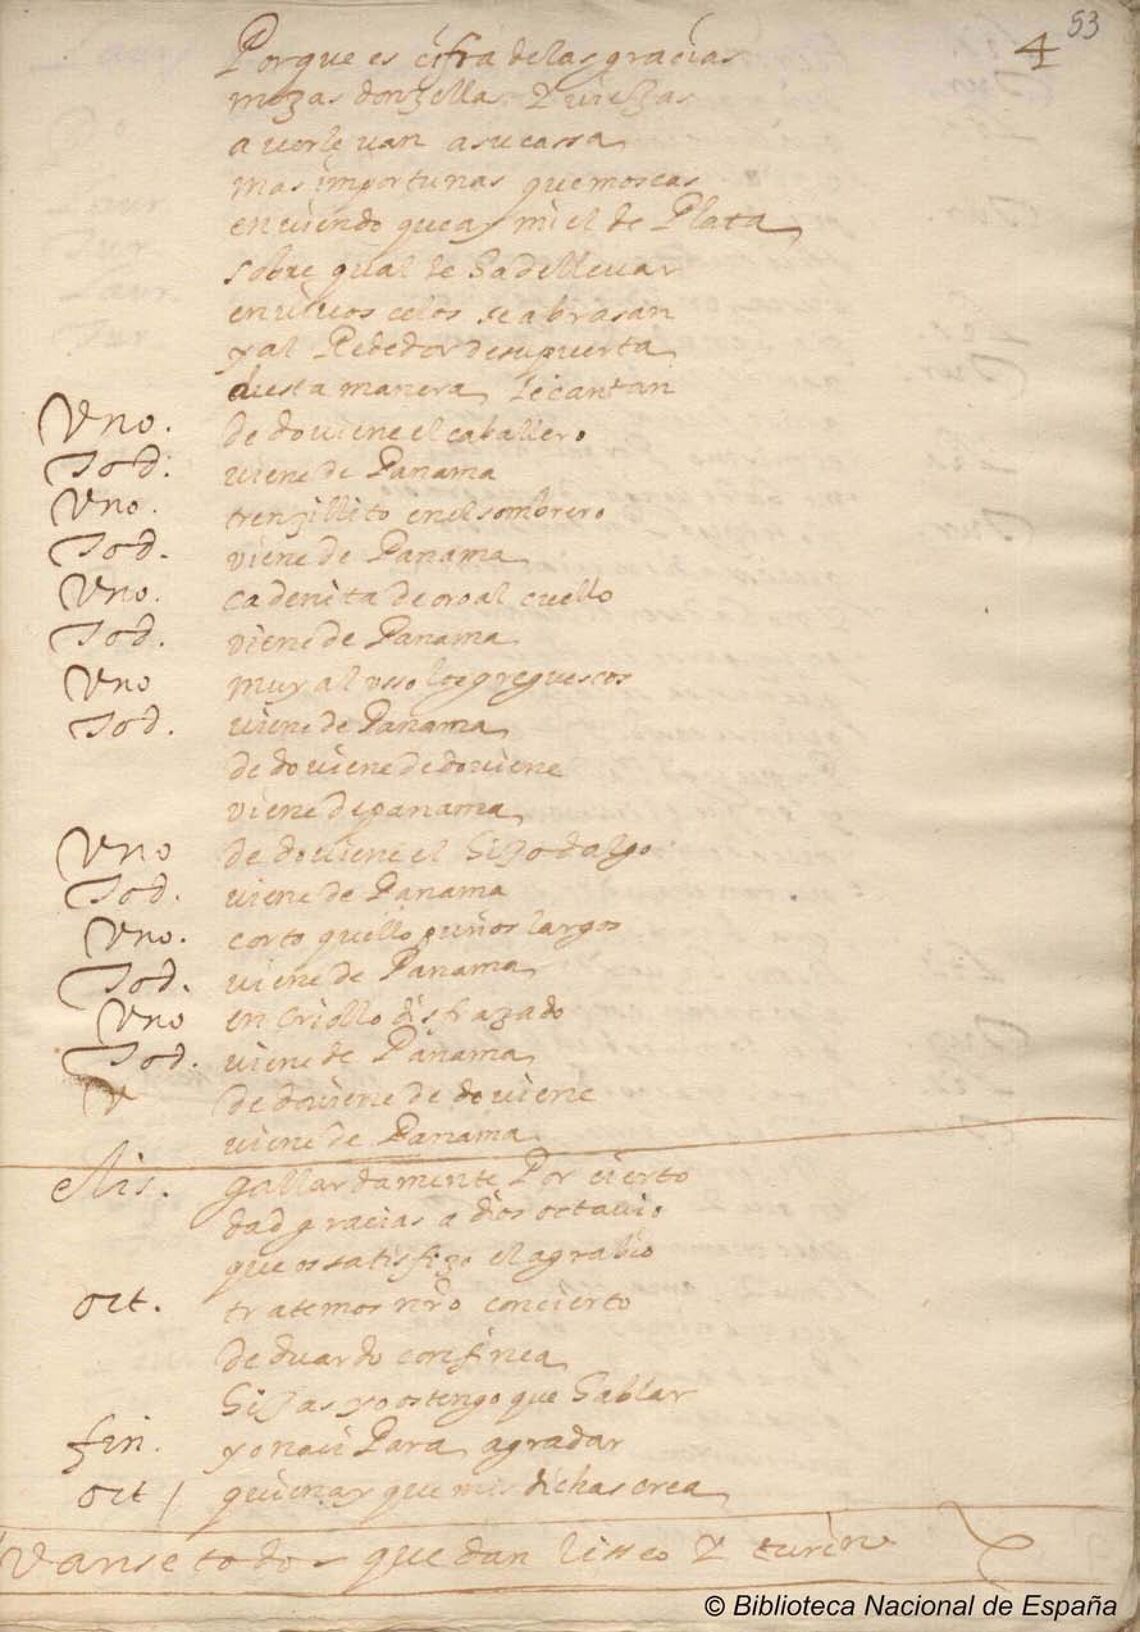 53
4
Porque es cifra delas gracias
mozas donzellas y viejas
a verle van a su cassa
mas importunas que moscas
en viendo que ay miel de Plata
sobre qual le ha de lleuar
en viuos celos se abrasan
y al Rededor de su puerta
desta manera le cantan
Vno. de do viene el caballero
Tod. viene de Panama
Vno. trenzillito en el sombrero
Tod. viene de Panama
Vno. cadenita de oro al cuello
Tod. viene de Panama
Vno muy al vsso los greguescos
Tod. viene de Panama
de do viene de do viene
viene de panama
Vno de do viene el hijo dalgo
Tod. viene de Panama
Vno. corto quello puños largos
Tod. viene de Panama
Vno en Criollo disfrazado
Tod. viene de Panama
V de do viene de do viene
viene de Panama
gallardamente Por cierto
dad gracias a dios octauio
que os satisfizo el agrabio
oct. tratemos nro concierto
de duardo con finea
hijas yo os tengo que hablar
fin. yo naci Para agradar
oct / quien ay que mis dichas crea
Vanse todos quedan lisseo y turin
© Biblioteca Nacional de España